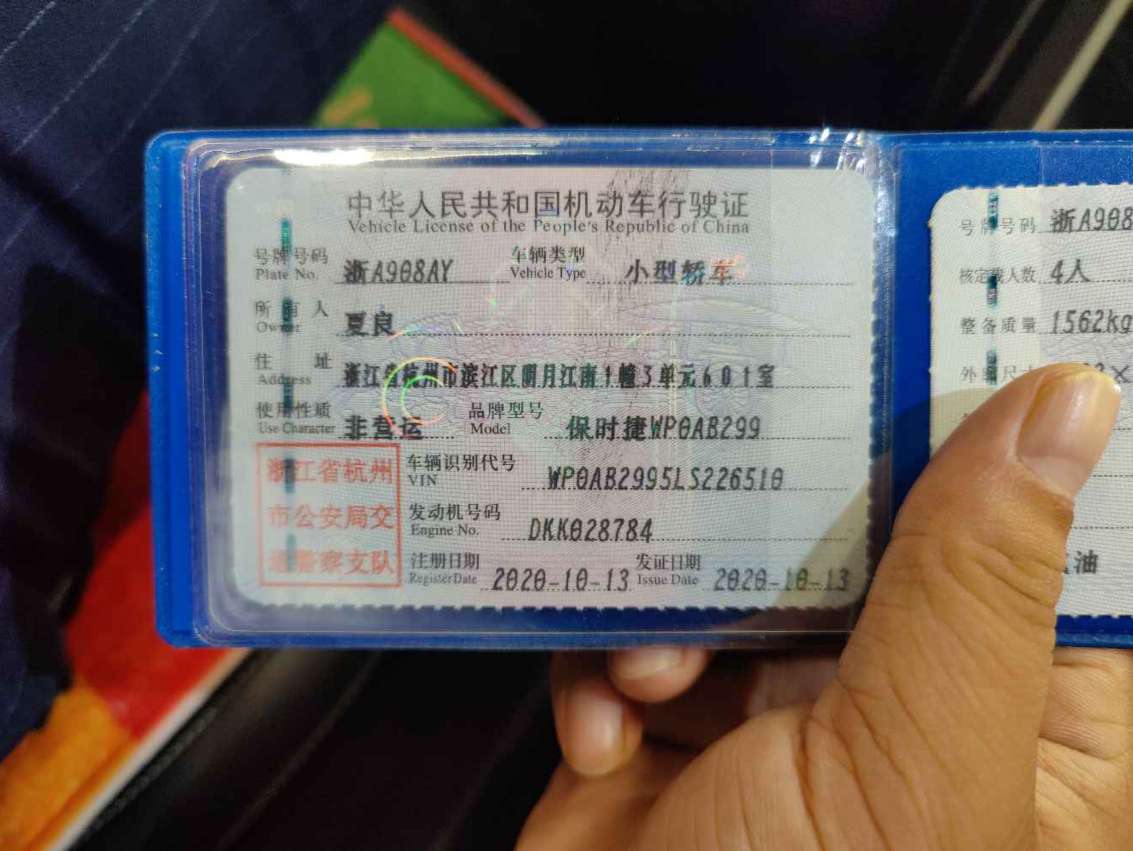 中华人民共和国机动车行驶证
Vehicle License of the People's Republic of China
号牌号码 浙A908AY 车辆类型 小型轿车
Plate No. Vehicle Type
所有人 夏良
Owner
住址 浙江省杭州市滨江区明月江南1幢3单元601室
Address
使用性质 非营运 品牌型号 保时捷WP0AB299
Use Character Model
浙江省杭州
市公安局交
通警察支队
车辆识别代号 WP0AB2995LS226510
VIN
发动机号码 DKK028784
Engine No.
注册日期 2020-10-13 发证日期 2020-10-13
Register Date Issue Date
号牌号码 浙A908
核定载人数 4人
整备质量 1562kg
外廓尺寸
油